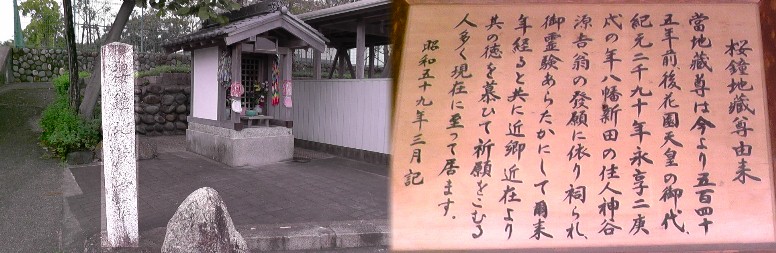 桜鐘地蔵尊由来
當地蔵尊は今より五百四十
五年前後花園天皇の御代、
紀元二千九十年永享二庚
戌の年八幡新田の住人神谷
源吾翁の發願に依り祠られ、
御霊験あらたかにして爾来
年経ると共に近郷近在より
其の徳を慕ひて祈願をこむる
人多く現在に至って居ます。
昭和五十九年三月記